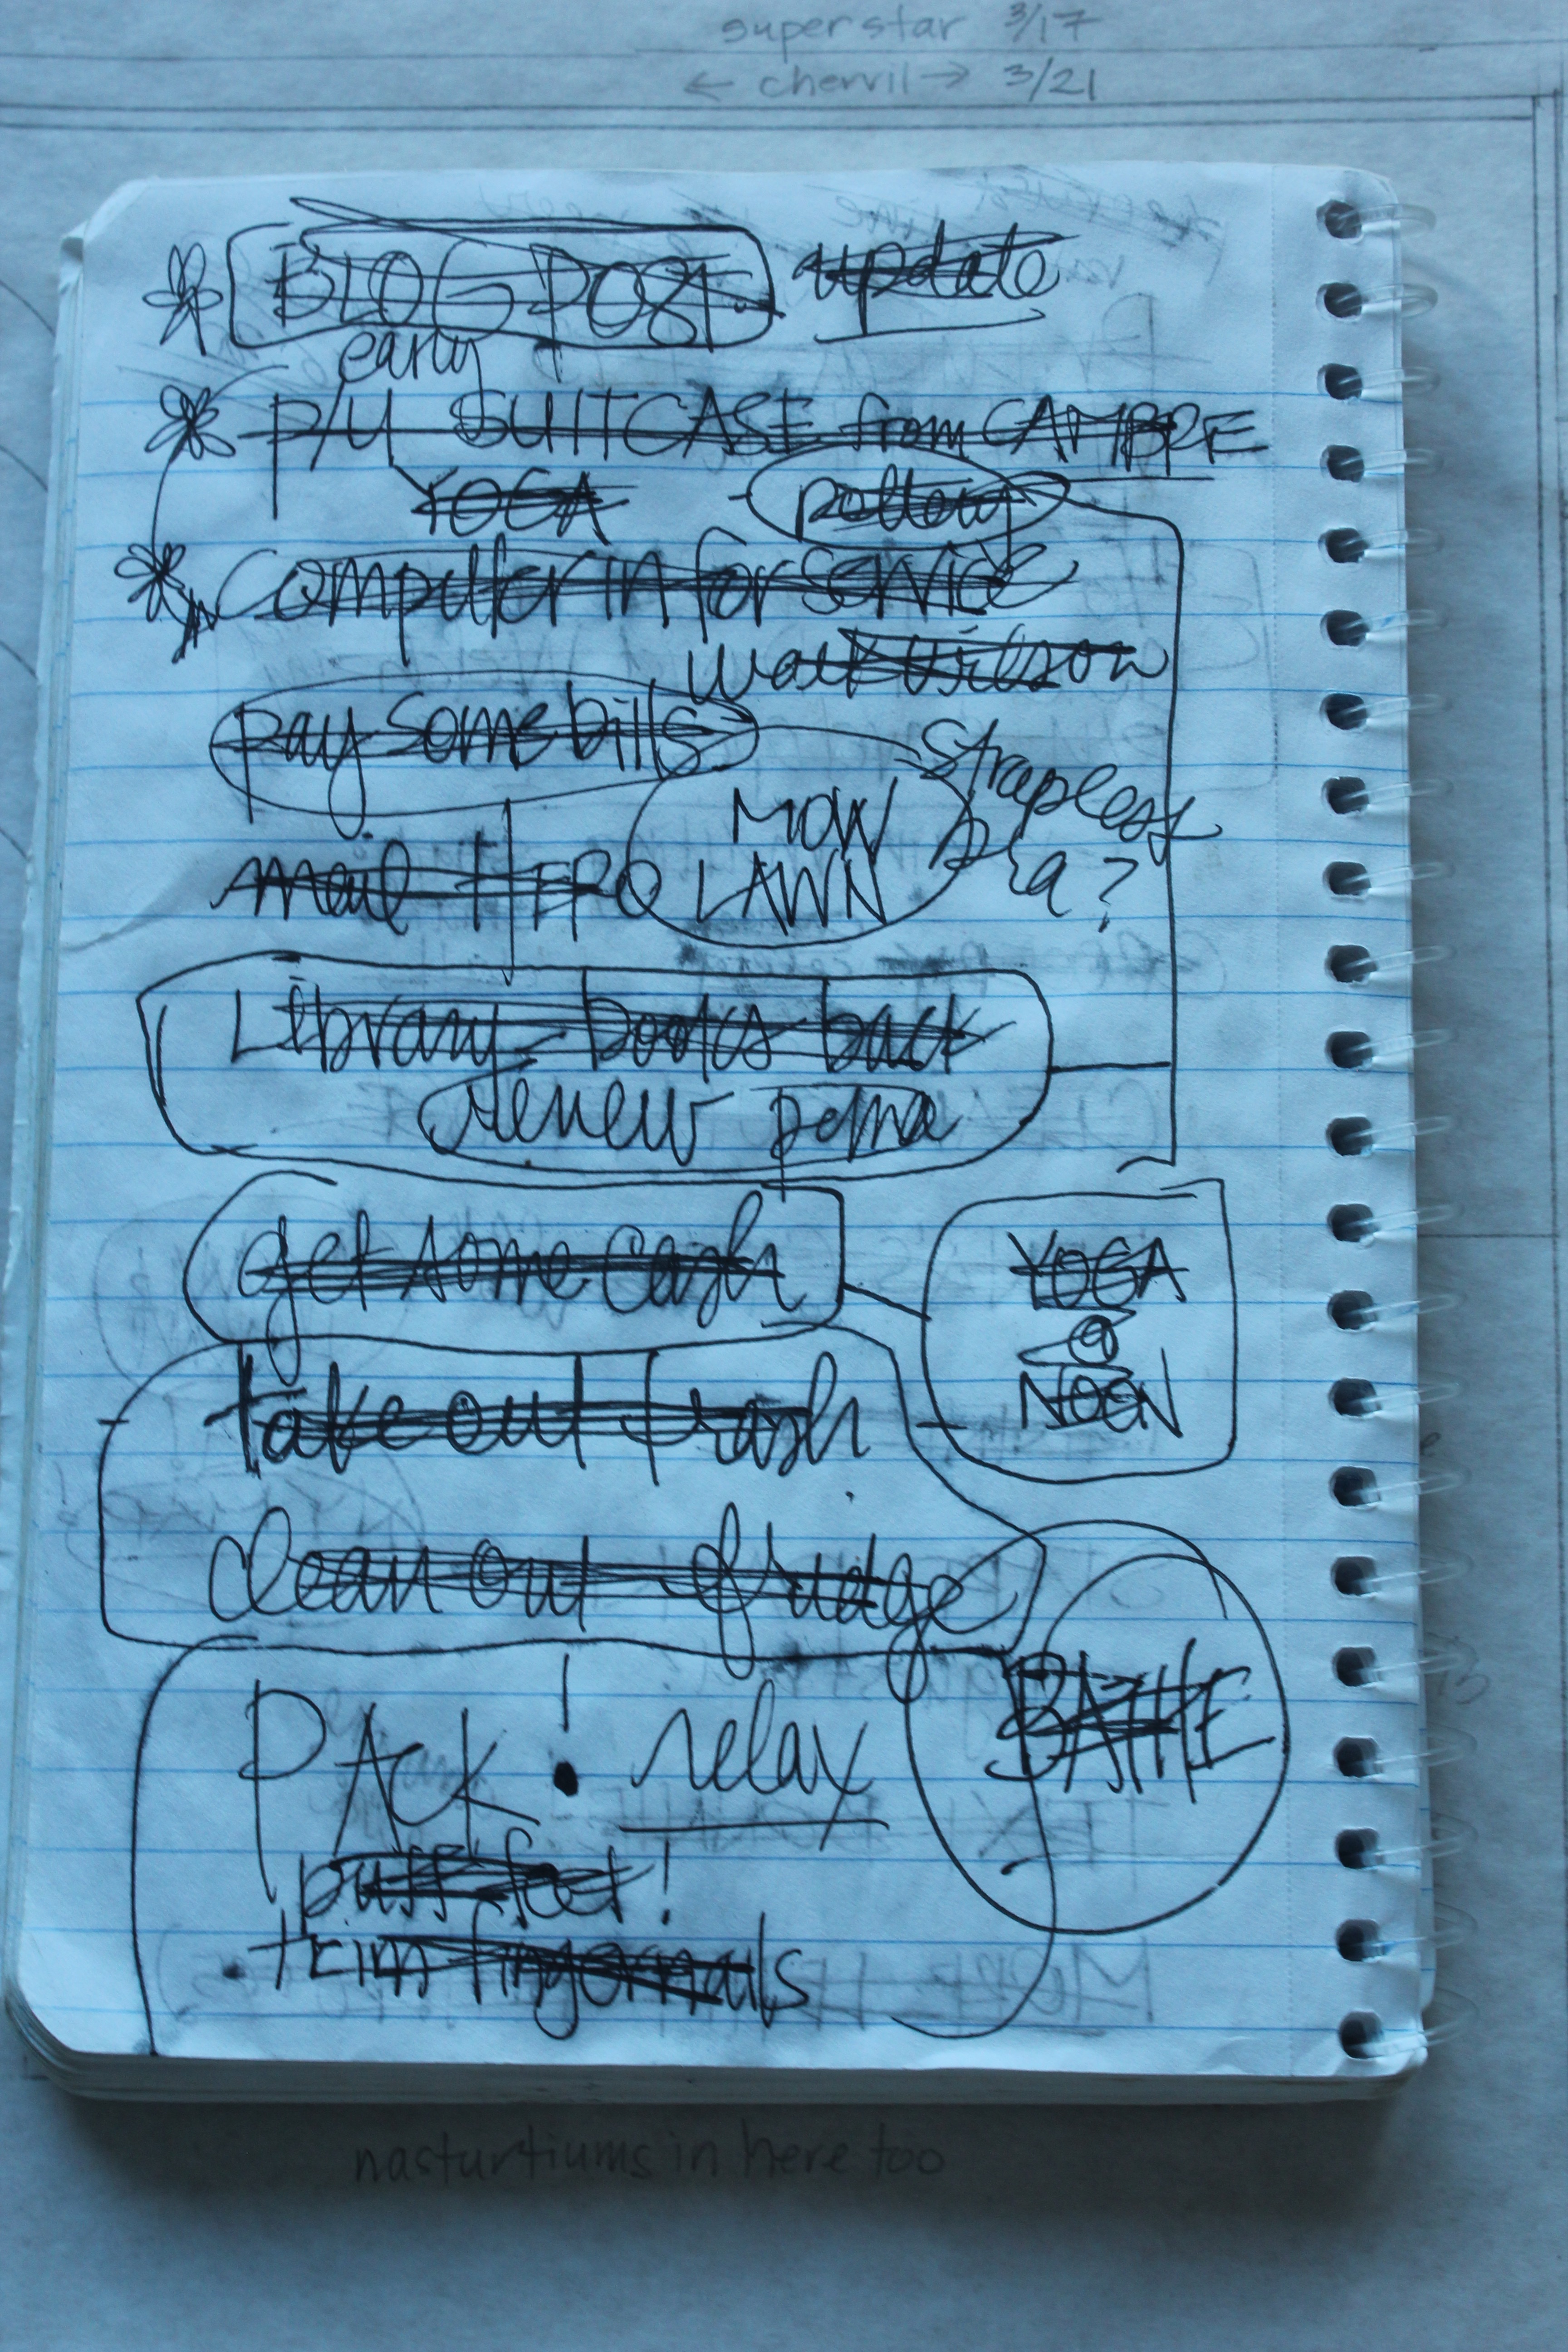 superstar 3/17
← chervil → 3/21
BLOG POST update
early
P/U SUITCASE from CAMBRE
YOGA pottery
Computer in for service
walk wilson
pay some bills
Strapless
bra?
MOW
LAWN
mail HERO
Library books back
renew
get some cash
YOGA
@
NOON
take out trash
clean out fridge
PACK! relax
BATHE
buff feet!
trim fingernails
nasturtiums in here too